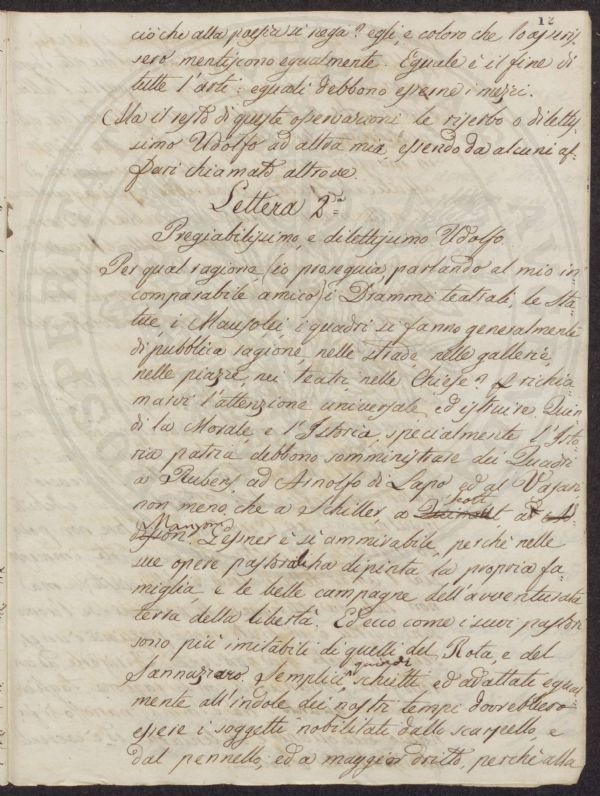 12
ciò che alla poesia si nega? egli, e coloro che lo asseris=
sero mentiscono egualmente. Eguale è il fine di
tutte l'arti: eguali debbono esserne i mezzi.
Ma il resto di queste osservazioni le riserbo o diletis=
simo Udolfo ad altra mia, essendo da alcuni af=
fari chiamato altrove.
Lettera 2.da
Pregiabilissimo, e diletissimo Udolfo
Per qual ragione (io proseguia, parlando al mio in=
comparabile amico) i Drammi teatrali, le Sta=
tue, i Mausolei, i quadri si fanno generalmente
di pubblica ragione nelle strade, nelle gallerie,
nelle piazze, nei teatri, nelle Chiese? P richia=
marvi l'attenzione universale, ed istruire. Quin=
di la Morale, e l'Istoria, specialmente l'Isto=
ria patria debbono somministrare dei Quadri
a Rubens, ad Arnolfo di Lapo, ed al Vasari,
non meno, che a Schiller, a Scott, ad
Manzoni. Gessner è si ammirabile, perchè nelle
sue opere pastorali ha dipinta la propria fa=
miglia e le belle campagne dell'avventurata
terra della libertà. Ed ecco come i suoi pastori
sono più imitabili di quelli del Rota, e del
Sannazzaro. Semplici, quindi schietti, ed adattati equal=
mente all'indole dei nostri tempi dovrebbero
essere i soggetti nobilitati dallo scarpello, e
dal pennello, ed a maggior dritto, perchè alla